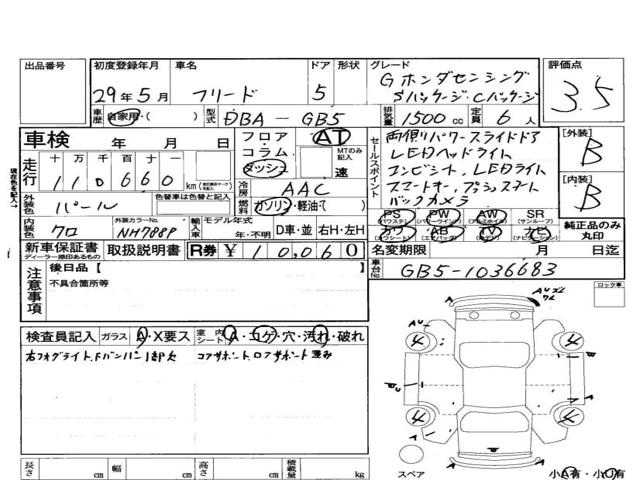 出品番号
初度登録年月
29年5月
車名
フリード
ドア
5
形状
グレード
Gホンダセンシング
Sパッケージ.Cパッケージ
評価点
3.5
車歴
自家用・( )
型式
DBA-GB5
排気量
1500cc
定員
6人
車検 年 月 日
フロア
コラム
ダッシュ
AT
MTのみ記入
速
セールスポイント
両側パワースライドドア
LEDヘッドライト
コンビシート、LEDライト
スマートキー、プッシュスタート
バックカメラ
[外装]
B
[内装]
B
走行
十 万 千 百 十 一
110660
km
現在色を記入→
外装色
パール
色替車は色替と記入
冷房
AAC
燃料
ガソリン・軽油・( )
内装色
クロ
外装カラーNo.
NH788P
輸入車
モデル年式
年・不明
D車・並
右H・左H
PS
(パワステ)
PW
(パワーウインド)
AW
(アルミホイール)
SR
(サンルーフ)
カワ
(カワシート)
AB
(エアバッグ)
TV
ナビ
(ナビゲーション)
純正品のみ丸印
新車保証書
ディーラー捺印あるもの
取扱説明書
R券 ¥10,060
名変期限 月 日迄
車台No.
GB5-1036683
注意事項
後日品【
不具合箇所等
ロック車
検査員記入
ガラス
A・X要ス
室内シート
A・コゲ・穴・汚れ・破れ
右フォグライト、Fバンパー1部欠
コアサポート、ロアサポート歪み
長さ cm
幅 cm
高さ cm
積載量 kg
スペア
小A有・小U有